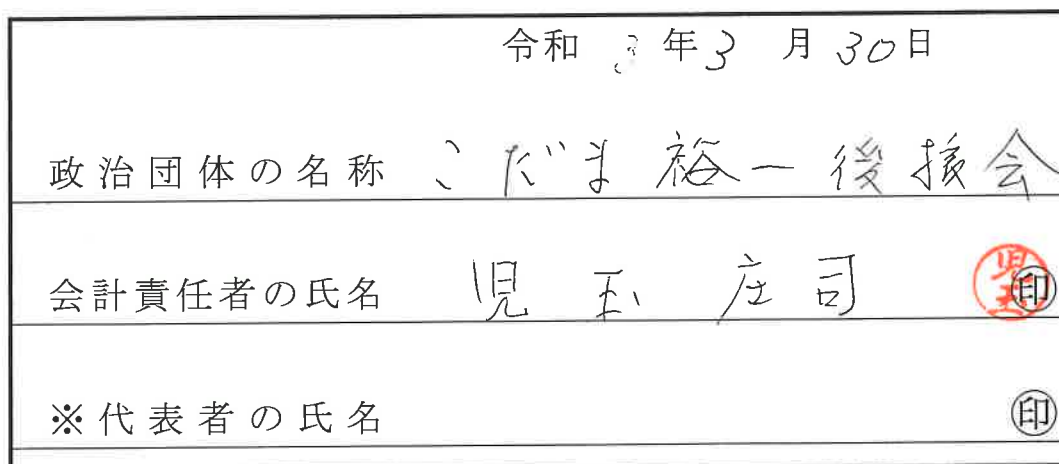 令和 3年3月30日
政治団体の名称 こだま裕一後援会
会計責任者の氏名 児玉庄司 児玉 ㊞
※代表者の氏名 ㊞